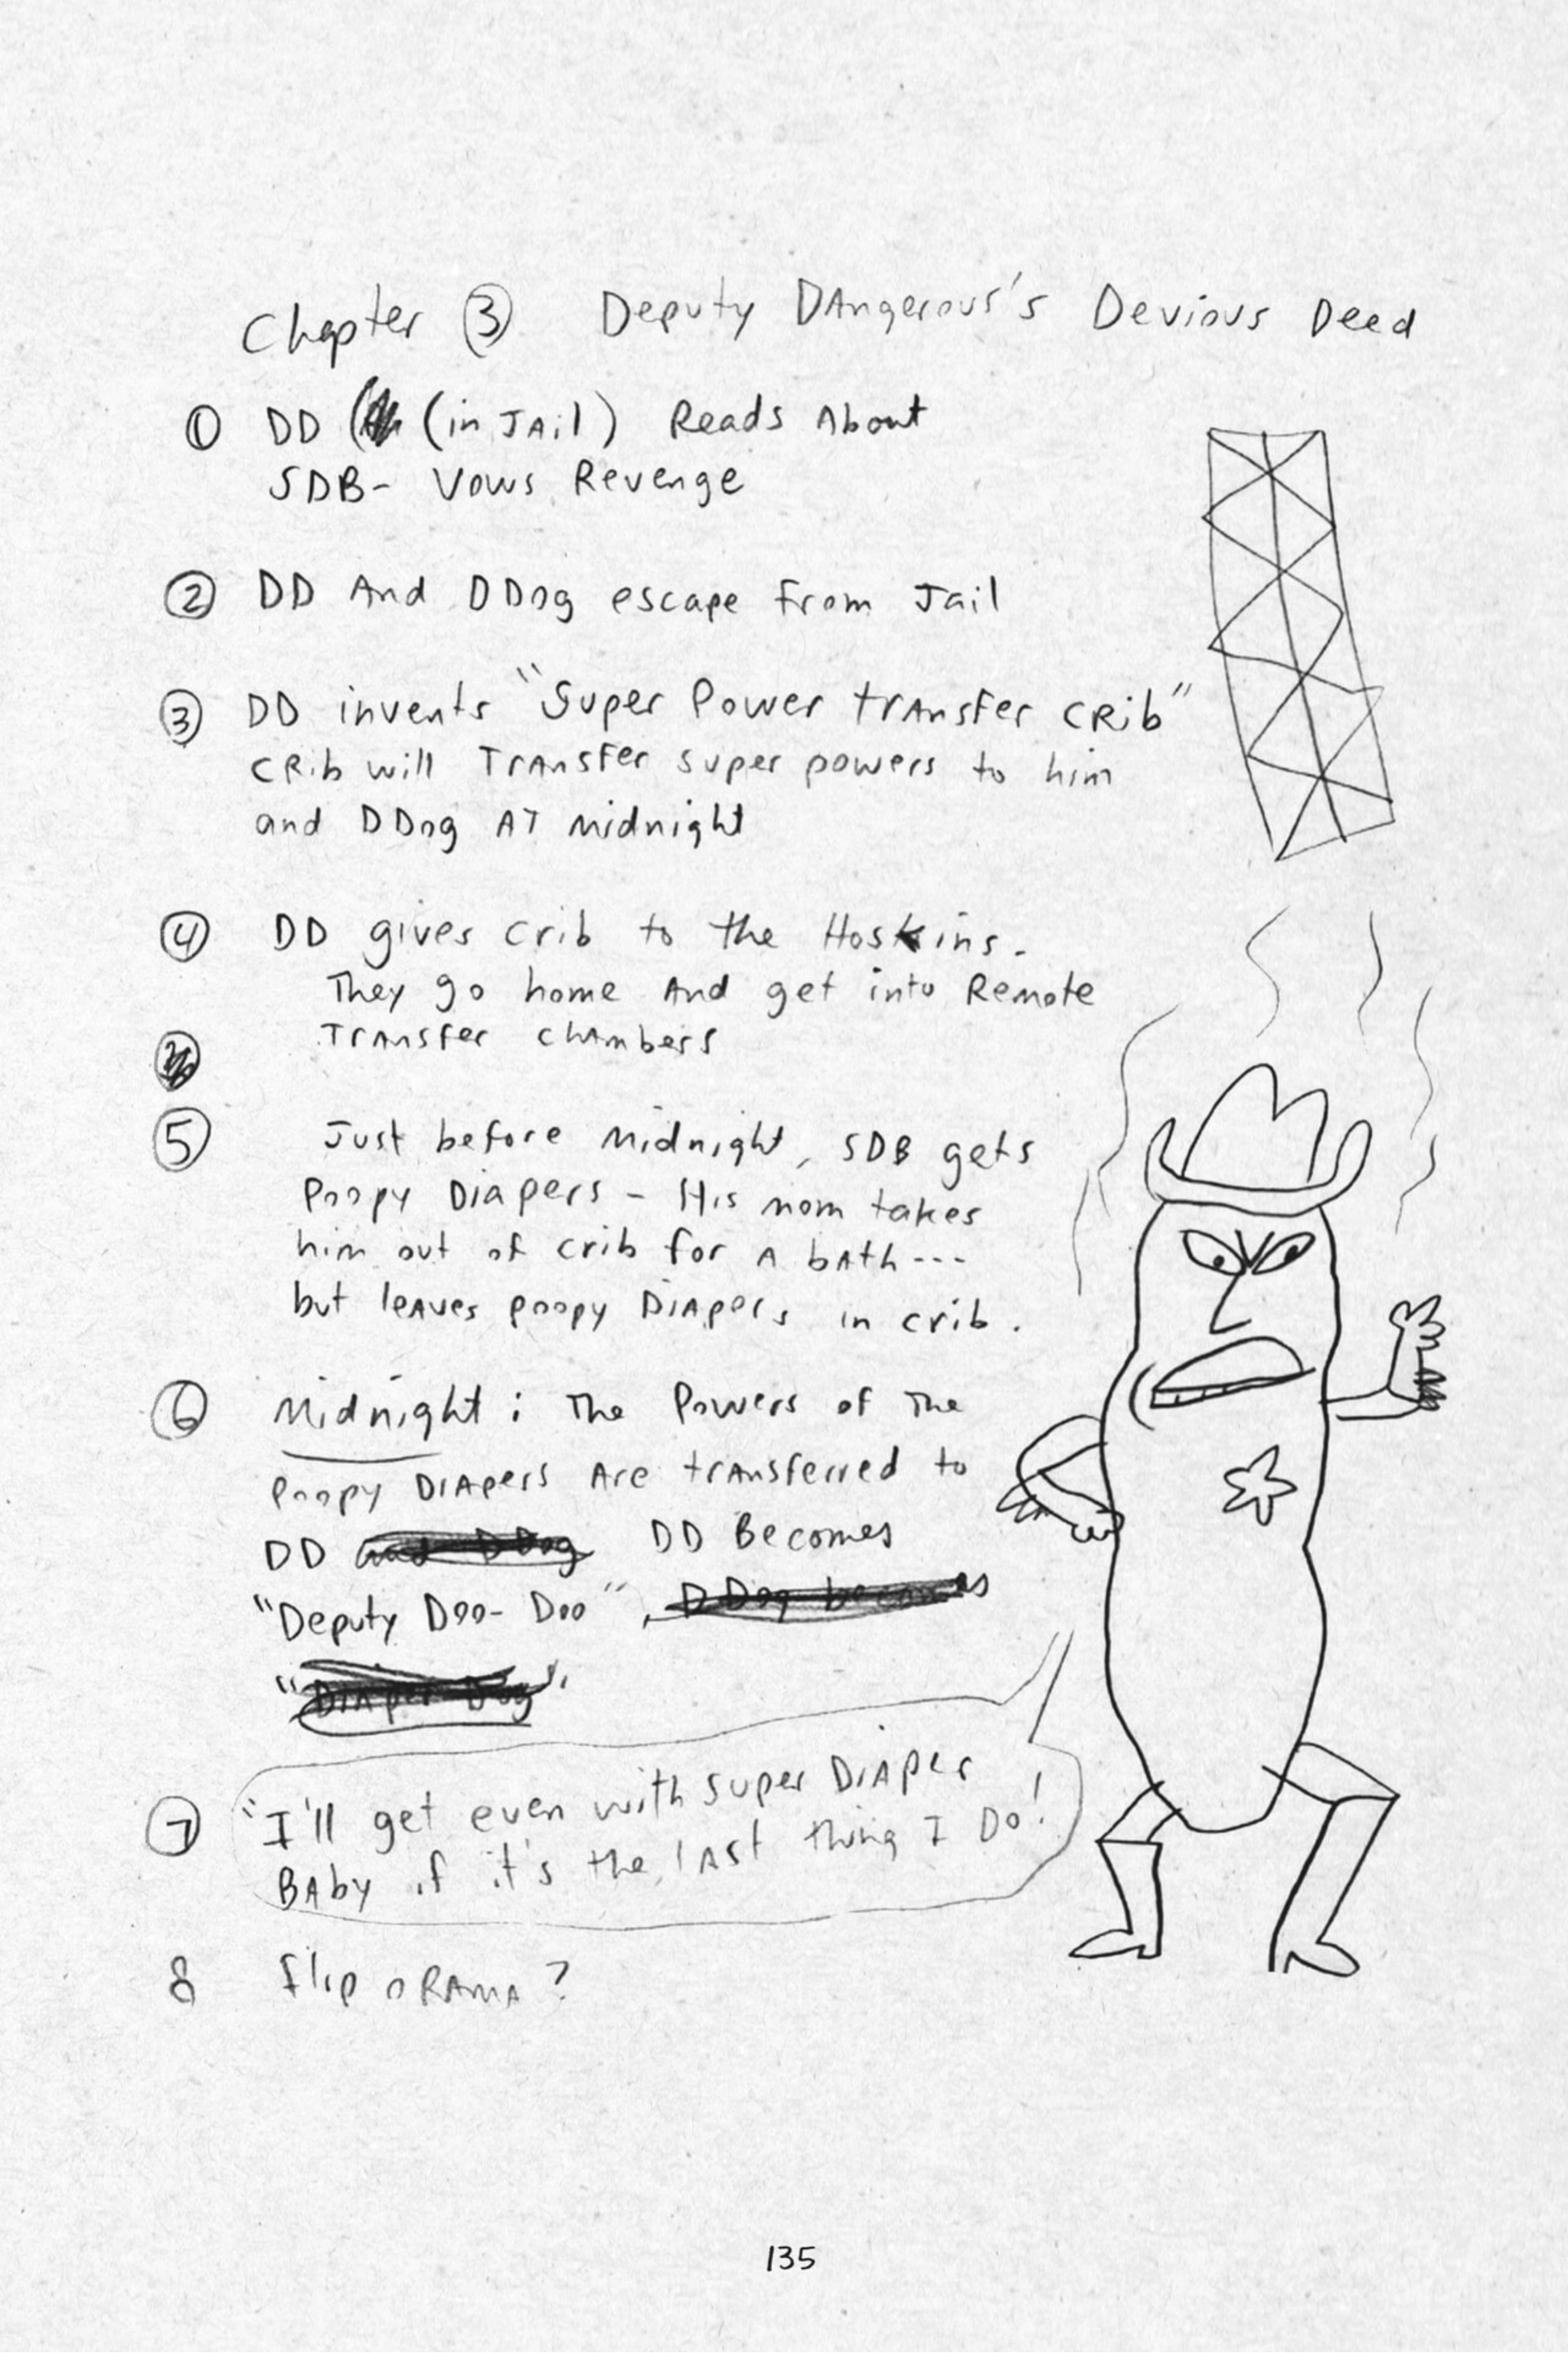 Chapter ③ Deputy Dangerous's Devious Deed
① DD (in Jail) Reads About
SDB- Vows Revenge
② DD And DDog escape from Jail
③ DD invents "Super Power transfer crib"
Crib will Transfer super powers to him
and DDog AT Midnight
④ DD gives crib to the Hoskins.
They go home And get into Remote
Transfer chambers
⑤ Just before Midnight, SDB gets
Poopy Diapers - His mom takes
him out of crib for a bath---
but leaves poopy Diapers in crib.
⑥ Midnight: The Powers of The
Poopy Diapers Are transferred to
DD and DDog DD Becomes
"Deputy Doo-Doo", DDog becomes
"Diaper Dog"
⑦ "I'll get even with Super Diaper
Baby if it's the last thing I Do!
8 flip oRama?
135